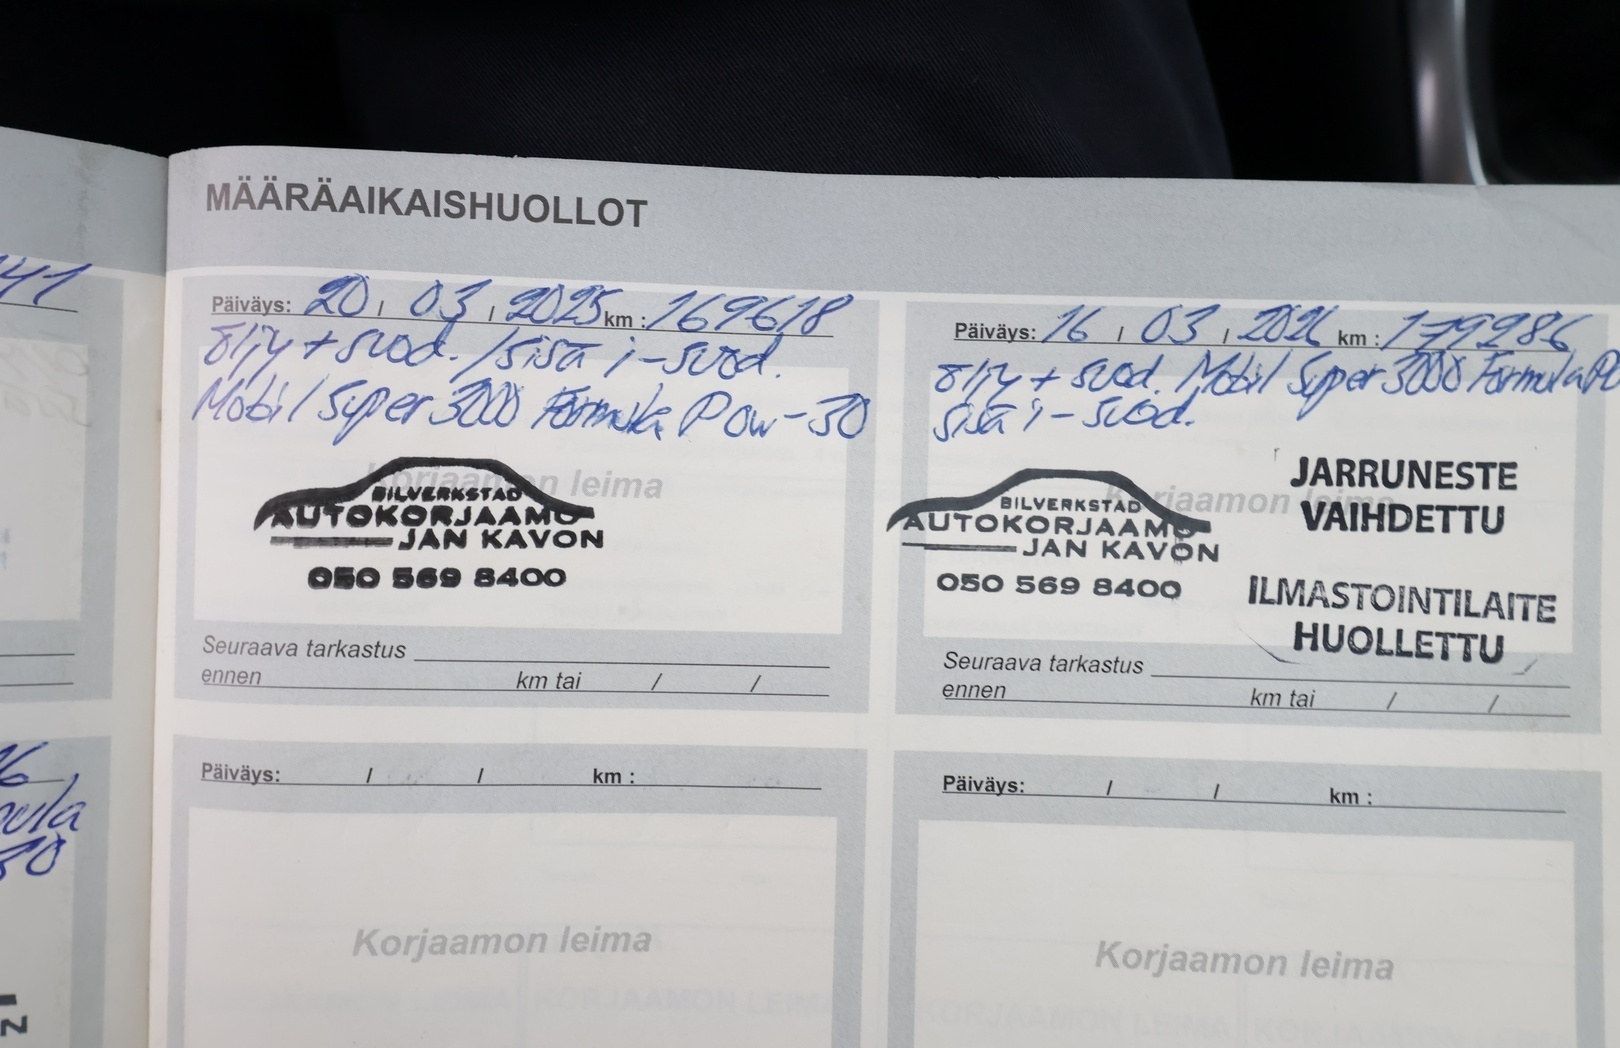 41
MÄÄRÄAIKAISHUOLLOT
Päiväys: 20 / 03 / 2025 km : 169618
öljy + suod. / sisä i-suod.
Mobil Super 3000 Formula P 0w-30
Korjaamon leima
BILVERKSTAD
AUTOKORJAAMO
JAN KAVON
050 569 8400
Seuraava tarkastus
ennen km tai / /
Päiväys: 16 / 03 / 2026 km : 179286
öljy + suod. Mobil Super 3000 Formula P0
sisä i-suod.
Korjaamon leima
BILVERKSTAD
AUTOKORJAAMO
JAN KAVON
050 569 8400
JARRUNESTE
VAIHDETTU
ILMASTOINTILAITE
HUOLLETTU
Seuraava tarkastus
ennen km tai / /
Päiväys: / / km :
Korjaamon leima
Päiväys: / / km :
Korjaamon leima